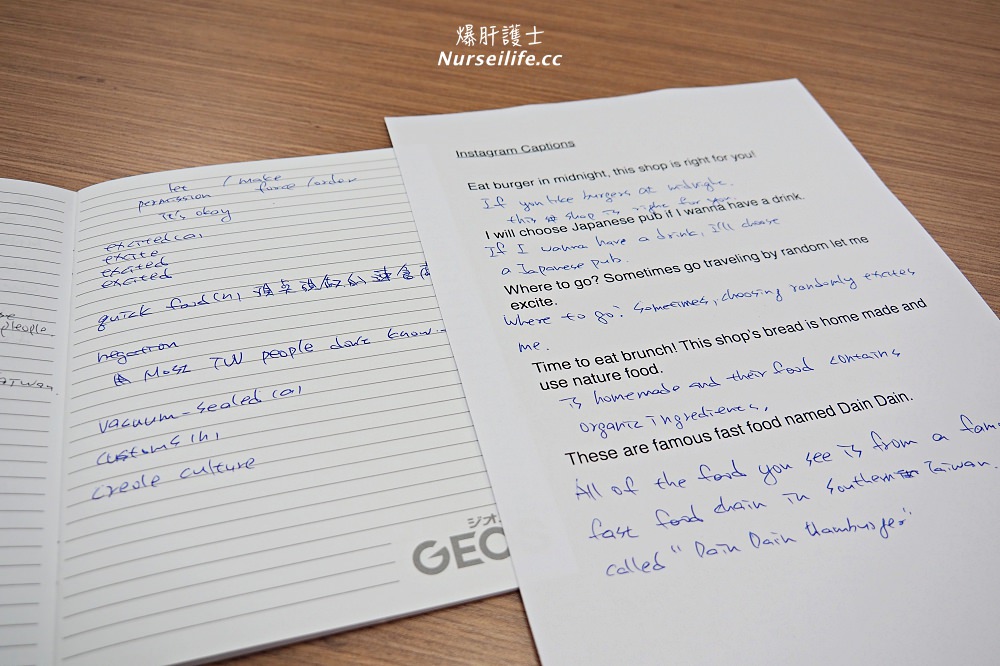 爆肝護士
Nurseilife.cc
people
let / make
permission force / order
it's okay
excited (a)
excite
excited
excited
quick food (n)
negation
Most TW people don't know
vacuum-sealed (a)
customs (n)
creole culture
ジオ
GEO
Instagram Captions
Eat burger in midnight, this shop is right for you!
If you like burgers at midnight.
this shop is right for you.
I will choose Japanese pub if I wanna have a drink.
If I wanna have a drink, I'll choose
a Japanese pub.
Where to go? Sometimes go traveling by random let me
excite.
Where to go. Sometimes, choosing randomly excites
me.
Time to eat brunch! This shop's bread is home made and
use nature food.
is homemade and their food contains
organic ingredients.
These are famous fast food named Dain Dain.
All of the food you see is from a fam
fast food chain in southern Taiwan.
called "Dain Dain Hamburger"